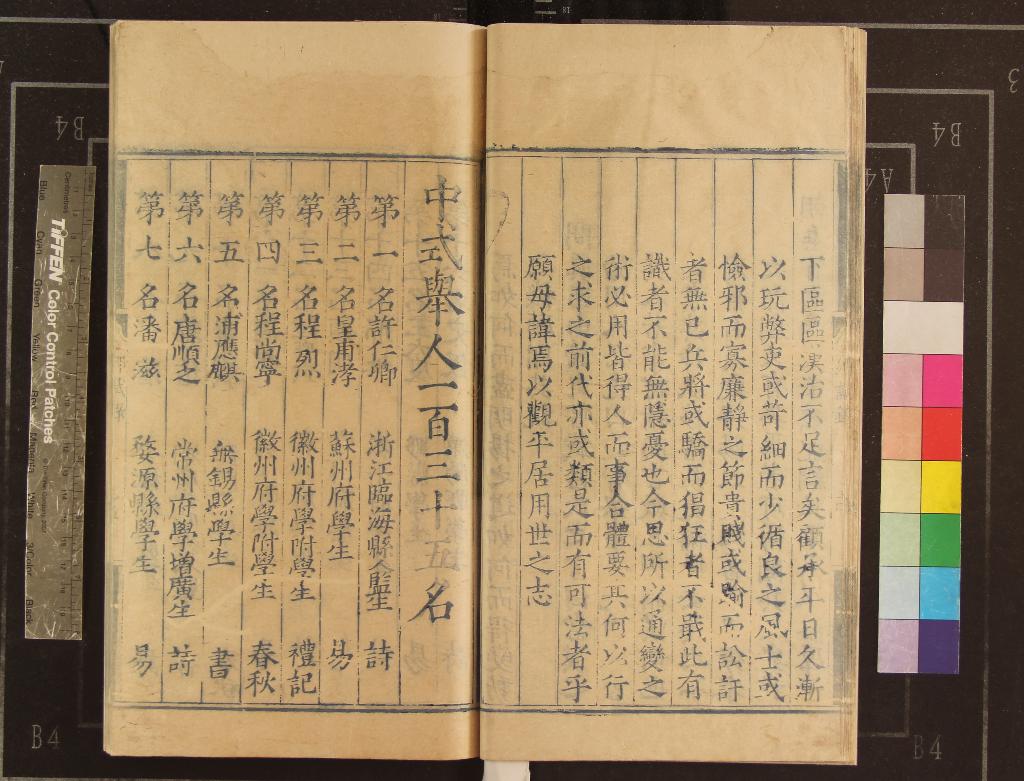 下區區漢治不足言矣顧承平日久漸
以玩弊吏或苛細而少循良之風士或
憸邪而寡廉靜之節貴賤或踰而訟訐
者無已兵將或驕而猖狂者不戢此有
識者不能無隱憂也今思所以通變之
術必用皆得人而事合體要其何以行
之求之前代亦或類是而有可法者乎
願毋諱焉以觀平居用世之志
中式舉人一百三十五名
第一名許仁卿 浙江臨海縣監生 詩
第二名皇甫涍 蘇州府學生 易
第三名程烈 徽州府學附學生 禮記
第四名程尚寧 徽州府學附學生 春秋
第五名浦應麒 無錫縣學生 書
第六名唐順之 常州府學增廣生 詩
第七名潘滋 婺源縣學生 易
TIFFEN Color Control Patches
Centimetres
Blue
Cyan
Green
Yellow
Red
Magenta
White
3/Color
Black
B4
B4
A4
B4
B4
3